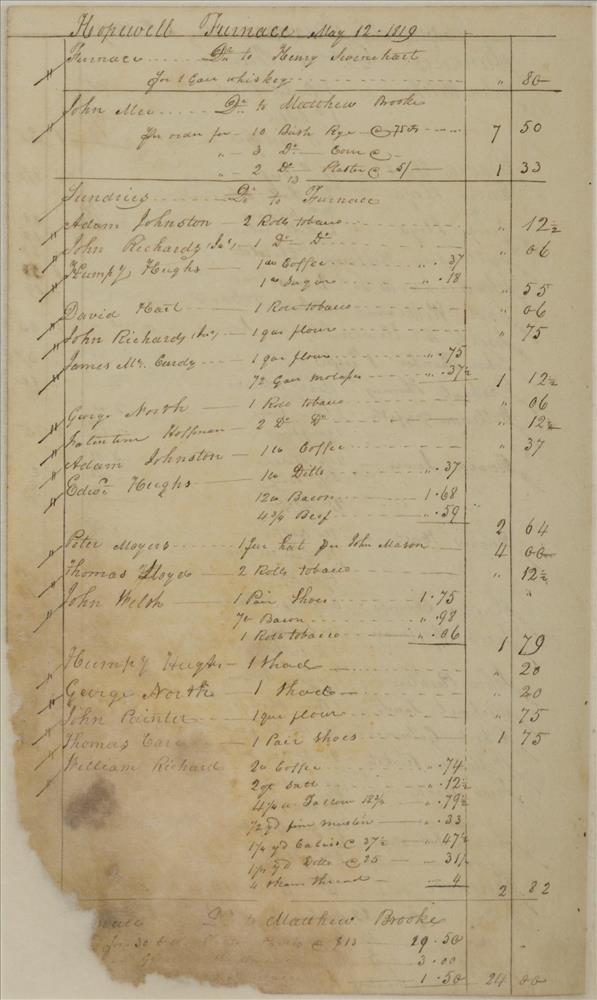 Hopewell Furnace May 12. 1819
Furnace Dr. to Henry Swinehart
for 1 Gall whiskey " 80
John Mee Dr. to Matthew Brooke
for order for 10 Bush Rye @ 75 cts 7 50
" 3 Do Corn @
" 2 Do Plaster @ 5/ 1 33
13
Sundries Dr. to Furnace
Adam Johnston 2 Rolls tobacco " 12½
John Richards (Jnr) 1 Do Do " 06
Humpy Hughs 1 lb Coffee " . 37
1 lb Sugar " . 18 " 55
David Hart 1 Roll tobacco " 06
John Richards 1 qur flour " 75
James Mc. Curdy 1 qur flour " . 75
½ Gall Molases " . 37½ 1 12½
George North 1 Roll tobacco " 06
Valentine Hoffman 2 Do Do " 12½
Adam Johnston 1 lb Coffee " 37
Edwd. Hughs 1 lb Ditto " . 37
12 lb Bacon 1 . 68
4¾ Beef " . 59 2 64
Peter Moyers 1 fur hat per John Mason 4 00
Thomas Lloyd 2 Rolls tobacco " 12½
John Welsh 1 Pair Shoes 1 . 75 "
7 lb Bacon " . 98
1 Roll tobacco " . 06 1 79
Humpy Hughs 1 Shad " 20
George North 1 Shad " 20
John Painter 1 qur flour " 75
Thomas 1 Pair Shoes 1 75
William Richard 2 lb Coffee " . 74
2 qt Salt " . 12½
Tallow " . 79½
½ yd fine muslin " . 33
yd Calico @ 37½ " 47½
yd Ditto @ 25 31
4 Skeins thread 4 2 82
Dr. to Matthew Brooke
29 . 50
3 . 00
1 . 50 24 00